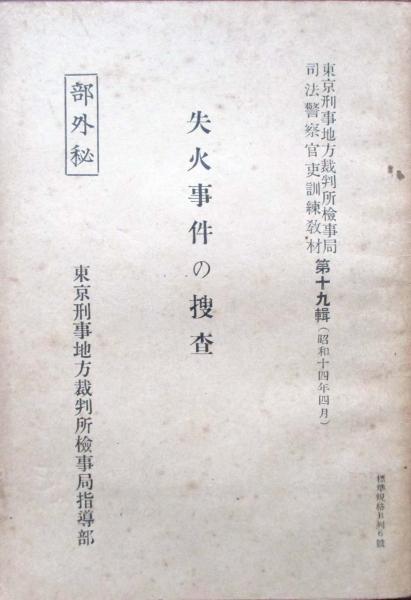 東京刑事地方裁判所檢事局
司法警察官吏訓練教材
第十九輯(昭和十四年四月)
標準規格B列6號
失火事件の搜査
部外秘
東京刑事地方裁判所檢事局指導部